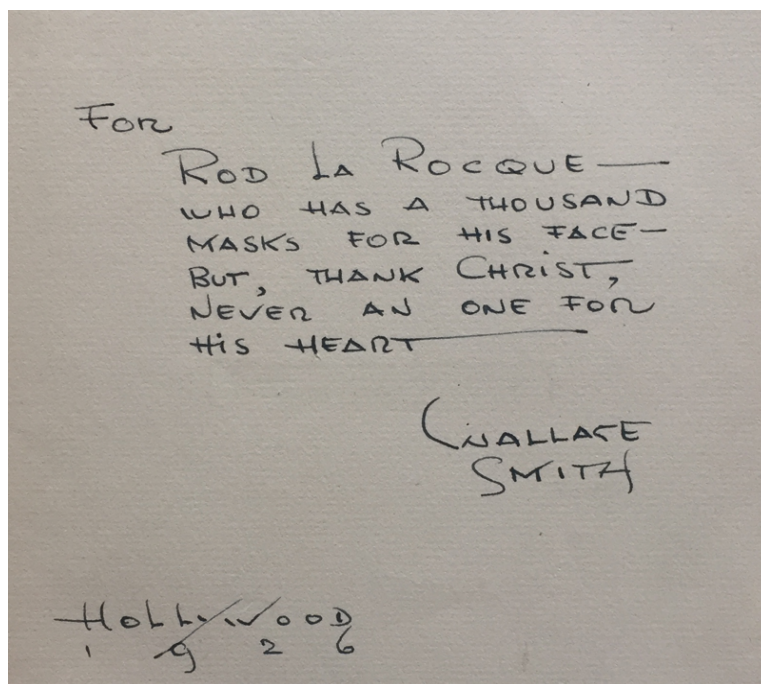 For
ROD LA ROCQUE—
WHO HAS A THOUSAND
MASKS FOR HIS FACE—
BUT, THANK CHRIST,
NEVER AN ONE FOR
HIS HEART—
WALLACE
SMITH
HOLLYWOOD
1926